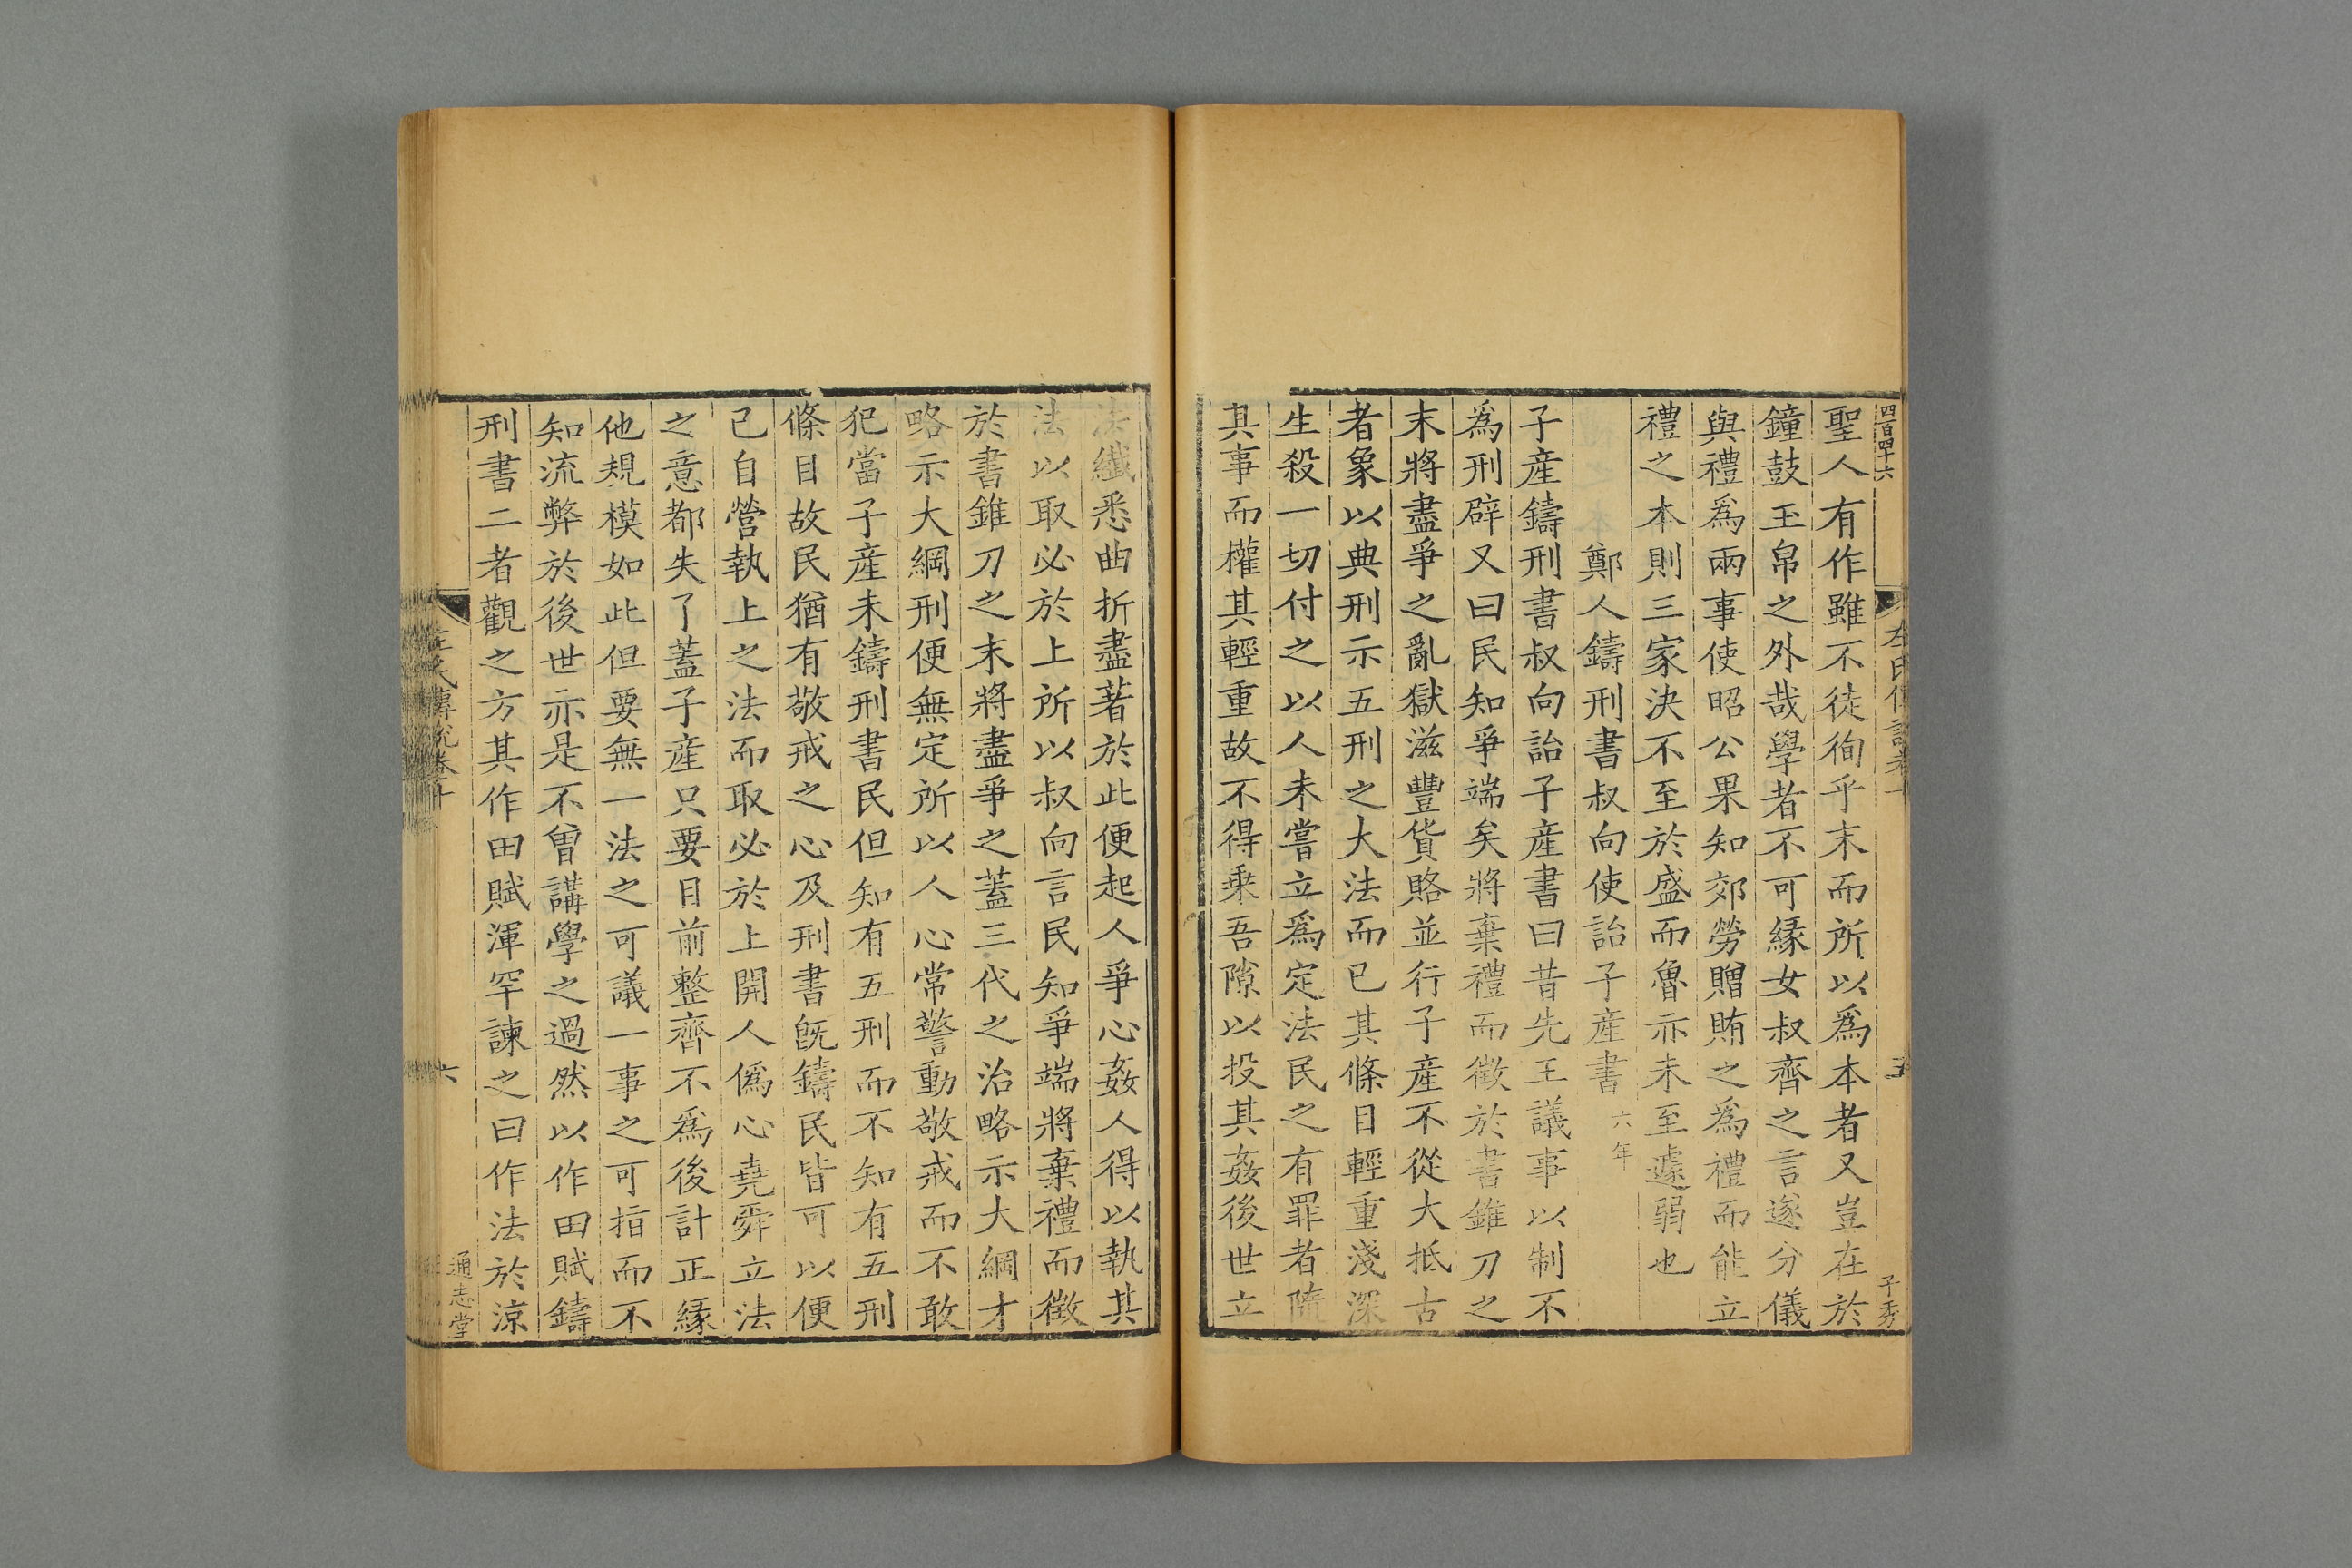 四百四十六
子秀
聖人有作雖不徒徇乎末而所以爲本者又豈在於
鐘鼓玉帛之外哉學者不可縁女叔齊之言遂分儀
與禮爲兩事使昭公果知郊勞贈賄之爲禮而能立
禮之本則三家決不至於盛而魯亦未至遽弱也
鄭人鑄刑書叔向使詒子產書六年
子產鑄刑書叔向詒子產書曰昔先王議事以制不
爲刑辟又曰民知爭端矣將棄禮而徵於書錐刀之
末將盡爭之亂獄滋豐貨賂並行子產不從大抵古
者象以典刑示五刑之大法而已其條目輕重淺深
生殺一切付之以人未嘗立爲定法民之有罪者隨
其事而權其輕重故不得乗吾隙以投其姦後世立
法纎悉曲折盡著於此便起人爭心姦人得以執其
法以取必於上所以叔向言民知爭端將棄禮而徵
於書錐刀之末將盡爭之蓋三代之治略示大綱才
略示大綱刑便無定所以人心常警動敬戒而不敢
犯當子產未鑄刑書民但知有五刑而不知有五刑
條目故民猶有敬戒之心及刑書旣鑄民皆可以便
己自營執上之法而取必於上開人僞心堯舜立法
之意都失了蓋子產只要目前整齊不爲後計正縁
他規模如此但要無一法之可議一事之可指而不
知流弊於後世亦是不曾講學之過然以作田賦鑄
刑書二者觀之方其作田賦渾罕諫之曰作法於涼
左氏傳說卷十
六
通志堂